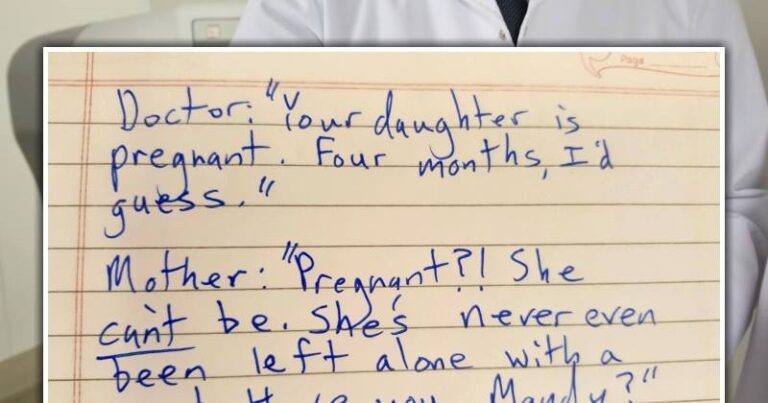 Page
Doctor: "Your daughter is
pregnant. Four months, I'd
guess."
Mother: "Pregnant?! She
can't be. She's never even
been left alone with a
you Mandy?"